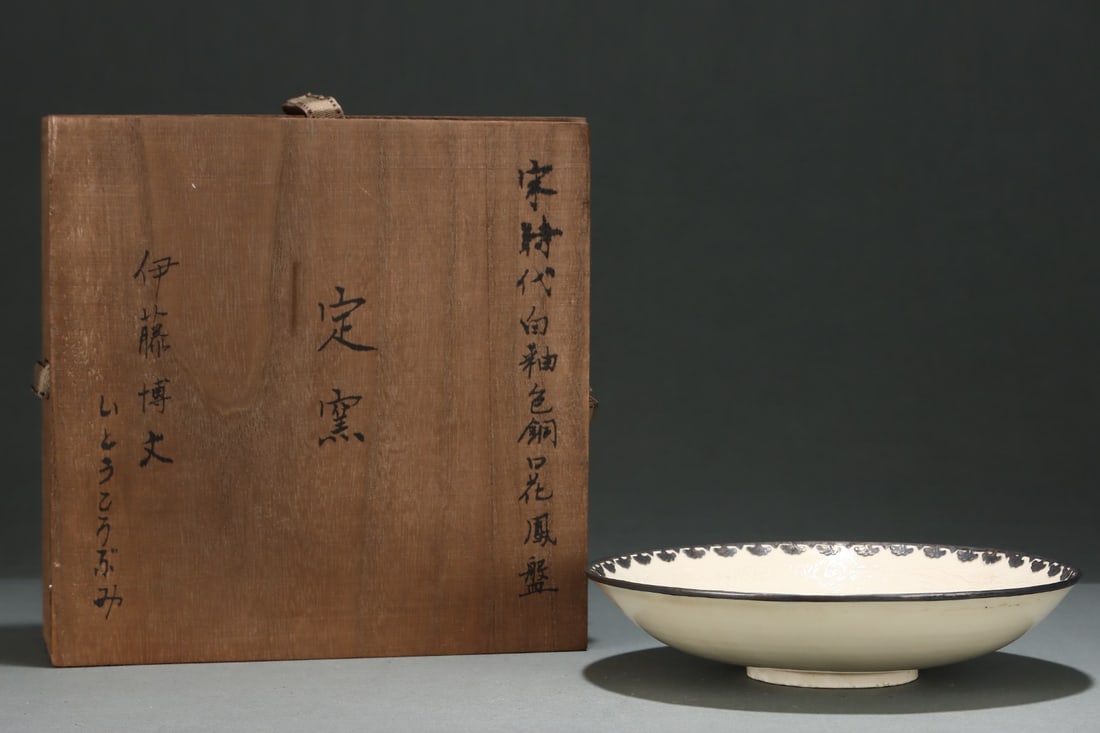 宋時代白釉色銅口花鳳盤
定窯
伊藤博文
いとうころぶみ